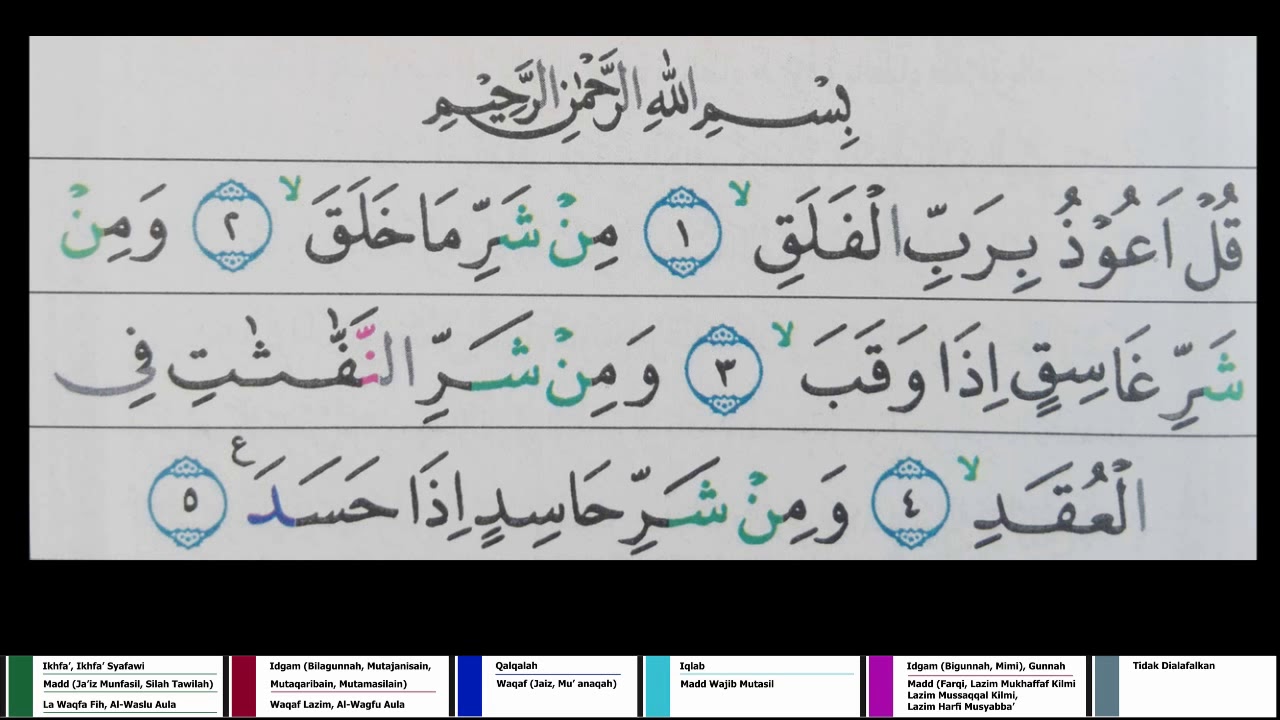 بِسْمِ اللهِ الرَّحْمٰنِ الرَّحِيْمِ
قُلْ اَعُوْذُ بِرَبِّ الْفَلَقِۙ ١ مِنْ شَرِّ مَا خَلَقَۙ ٢ وَمِنْ
شَرِّ غَاسِقٍ اِذَا وَقَبَۙ ٣ وَمِنْ شَرِّ النَّفّٰثٰتِ فِى
الْعُقَدِۙ ٤ وَمِنْ شَرِّ حَاسِدٍ اِذَا حَسَدَ ࣖ ٥
Ikhfa', Ikhfa' Syafawi
Madd (Ja'iz Munfasil, Silah Tawilah)
La Waqfa Fih, Al-Waslu Aula
Idgam (Bilagunnah, Mutajanisain,
Mutaqaribain, Mutamasilain)
Waqaf Lazim, Al-Wagfu Aula
Qalqalah
Waqaf (Jaiz, Mu' anaqah)
Iqlab
Madd Wajib Mutasil
Idgam (Bigunnah, Mimi), Gunnah
Madd (Farqi, Lazim Mukhaffaf Kilmi
Lazim Mussaqqal Kilmi,
Lazim Harfi Musyabba'
Tidak Dialafalkan